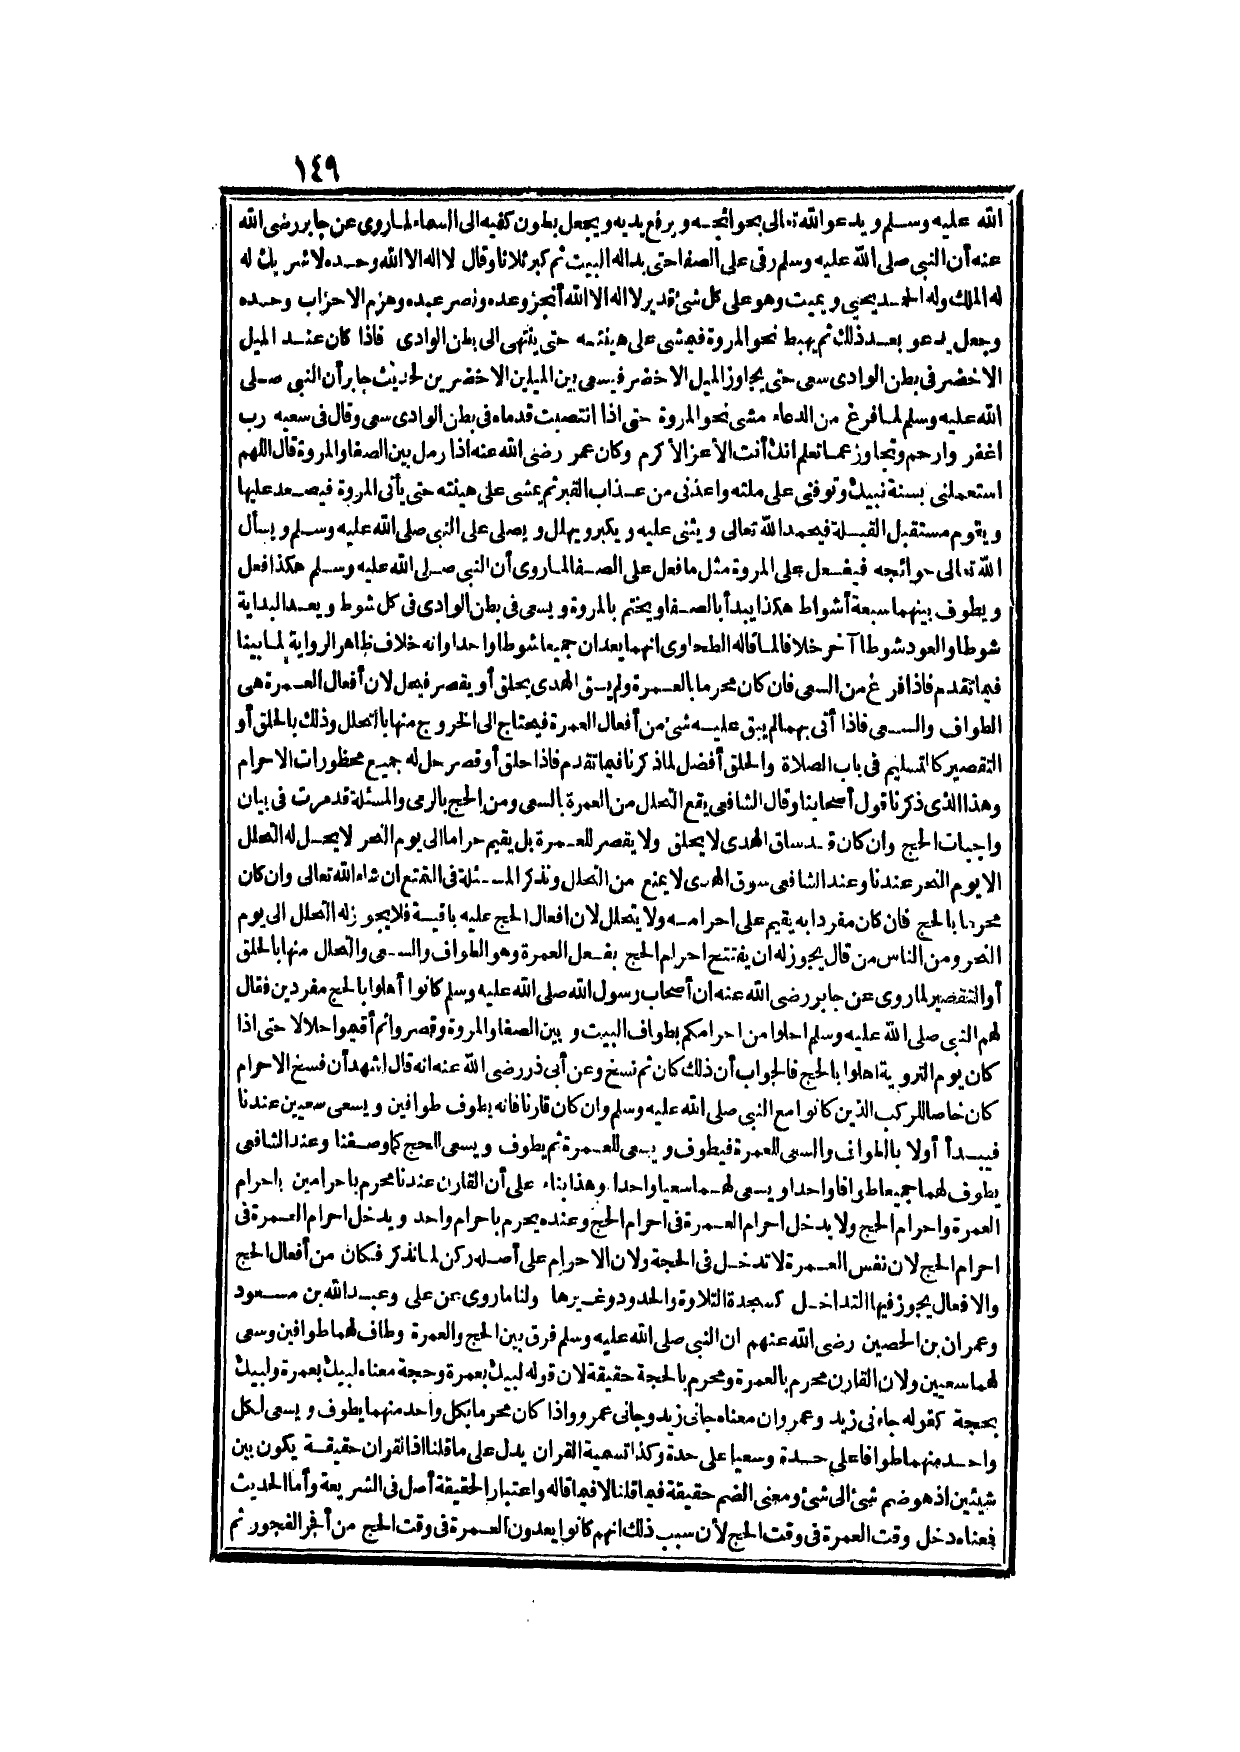 ١٤٩
الله عليه وسلم ويدعو الله تعالى بحوائجه ويرفع يديه ويجعل بطون كفيه الى السماء لما روى عن جابر رضى الله
عنه أن النبى صلى الله عليه وسلم رقى على الصفا حتى بدا له البيت ثم كبر ثلاثا وقال لا اله الا الله وحده لا شريك له
له الملك وله الحمد يحيى ويميت وهو على كل شئ قدير لا اله الا الله أنجز وعده ونصر عبده وهزم الاحزاب وحده
وجعل يدعو بعد ذلك ثم يهبط نحو المروة فيمشى على هيئته حتى ينتهى الى بطن الوادى فاذا كان عند الميل
الاخضر فى بطن الوادى سعى حتى يجاوز الميل الاخضر فيسعى بين الميلين الاخضرين لحديث جابر أن النبى صلى
الله عليه وسلم لما فرغ من الدعاء مشى نحو المروة حتى اذا انتصبت قدماه فى بطن الوادى سعى وقال فى سعيه رب
اغفر وارحم وتجاوز عما تعلم انك أنت الأعز الأكرم وكان عمر رضى الله عنه اذا رمل بين الصفا والمروة قال اللهم
استعملنى بسنة نبيك وتوفنى على ملته واعذنى من عذاب القبر ثم يمشى على هيئته حتى يأتى المروة فيصعد عليها
ويقوم مستقبل القبلة فيحمد الله تعالى ويثنى عليه ويكبر ويهلل ويصلى على النبى صلى الله عليه وسلم ويسأل
الله تعالى حوائجه فيفعل على المروة مثل ما فعل على الصفا لما روى أن النبى صلى الله عليه وسلم هكذا فعل
ويطوف بينهما سبعة أشواط هكذا يبدأ بالصفا ويختم بالمروة ويسعى فى بطن الوادى فى كل شوط ويعد البداية
شوطا والعود شوطا آخر خلافا لما قاله الطحاوى انهما يعدان جميعا شوطا واحدا وانه خلاف ظاهر الرواية لما بينا
فيما تقدم فاذا فرغ من السعى فان كان محرما بالعمرة ولم يسق الهدى يحلق أو يقصر فيحل لان أفعال العمرة هى
الطواف والسعى فاذا أتى بهما لم يبق عليه شئ من أفعال العمرة فيحتاج الى الخروج منها بالتحلل وذلك بالحلق أو
التقصير كالتسليم فى باب الصلاة والحلق أفضل لما ذكرنا فيما تقدم فاذا حلق أو قصر حل له جميع محظورات الاحرام
وهذا الذى ذكرنا قول أصحابنا وقال الشافعى يقع التحلل من العمرة بالسعى ومن الحج بالرمى والمسئلة قد مرت فى بيان
واجبات الحج وان كان قد ساق الهدى لا يحلق ولا يقصر للعمرة بل يقيم حراما الى يوم النحر لا يحل له التحلل
الا يوم النحر عندنا وعند الشافعى سوق الهدى لا يمنع من التحلل ونذكر المسئلة فى التمتع ان شاء الله تعالى وان كان
محرما بالحج فان كان مفردا به يقيم على احرامه ولا يتحلل لان افعال الحج عليه باقية فلا يجوز له التحلل الى يوم
النحر ومن الناس من قال يجوز له ان يفتتح احرام الحج بفعل العمرة وهو الطواف والسعى والتحلل منها بالحلق
أو التقصير لما روى عن جابر رضى الله عنه ان أصحاب رسول الله صلى الله عليه وسلم كانوا أهلوا بالحج مفردين فقال
لهم النبى صلى الله عليه وسلم احلوا من احرامكم بطواف البيت وبين الصفا والمروة وقصروا ثم أقيموا حلالا حتى اذا
كان يوم التروية اهلوا بالحج فالجواب أن ذلك كان ثم نسخ وعن أبى ذر رضى الله عنه انه قال اشهد أن فسخ الاحرام
كان خاصا للركب الذين كانوا مع النبى صلى الله عليه وسلم وان كان قارنا فانه يطوف طوافين ويسعى سعيين عندنا
فيبدأ أولا بالطواف والسعى للعمرة فيطوف ويسعى للعمرة ثم يطوف ويسعى للحج كما وصفنا وعند الشافعى
يطوف لهما جميعا طوافا واحدا ويسعى لهما سعيا واحدا وهذا بناء على أن القارن عندنا محرم باحرامين باحرام
العمرة واحرام الحج ولا يدخل احرام العمرة فى احرام الحج وعنده يحرم باحرام واحد ويدخل احرام العمرة فى
احرام الحج لان نفس العمرة لا تدخل فى الحجة ولان الاحرام على أصله ركن لما نذكر فكان من أفعال الحج
والافعال يجوز فيها التداخل كسجدة التلاوة والحدود وغيرها ولنا ما روى عن على وعبد الله بن مسعود
وعمران بن الحصين رضى الله عنهم ان النبى صلى الله عليه وسلم فرق بين الحج والعمرة وطاف لهما طوافين وسعى
لهما سعيين ولان القارن محرم بالعمرة ومحرم بالحجة حقيقة لان قوله لبيك بعمرة وحجة معناه لبيك بعمرة ولبيك
بحجة كقوله جاءنى زيد وعمرو ان معناه جانى زيد وجانى عمرو واذا كان محرما بكل واحد منهما يطوف ويسعى لكل
واحد منهما طوافا على حدة وسعيا على حدة وكذا تسمية القران يدل على ما قلنا اذ القران حقيقة يكون بين
شيئين اذ هو ضم شئ الى شئ ومعنى الضم حقيقة فيما قلنا لا فيما قاله واعتبار الحقيقة أصل فى الشريعة وأما الحديث
فمعناه دخل وقت العمرة فى وقت الحج لأن سبب ذلك انهم كانوا يعدون العمرة فى وقت الحج من أفجر الفجور ثم